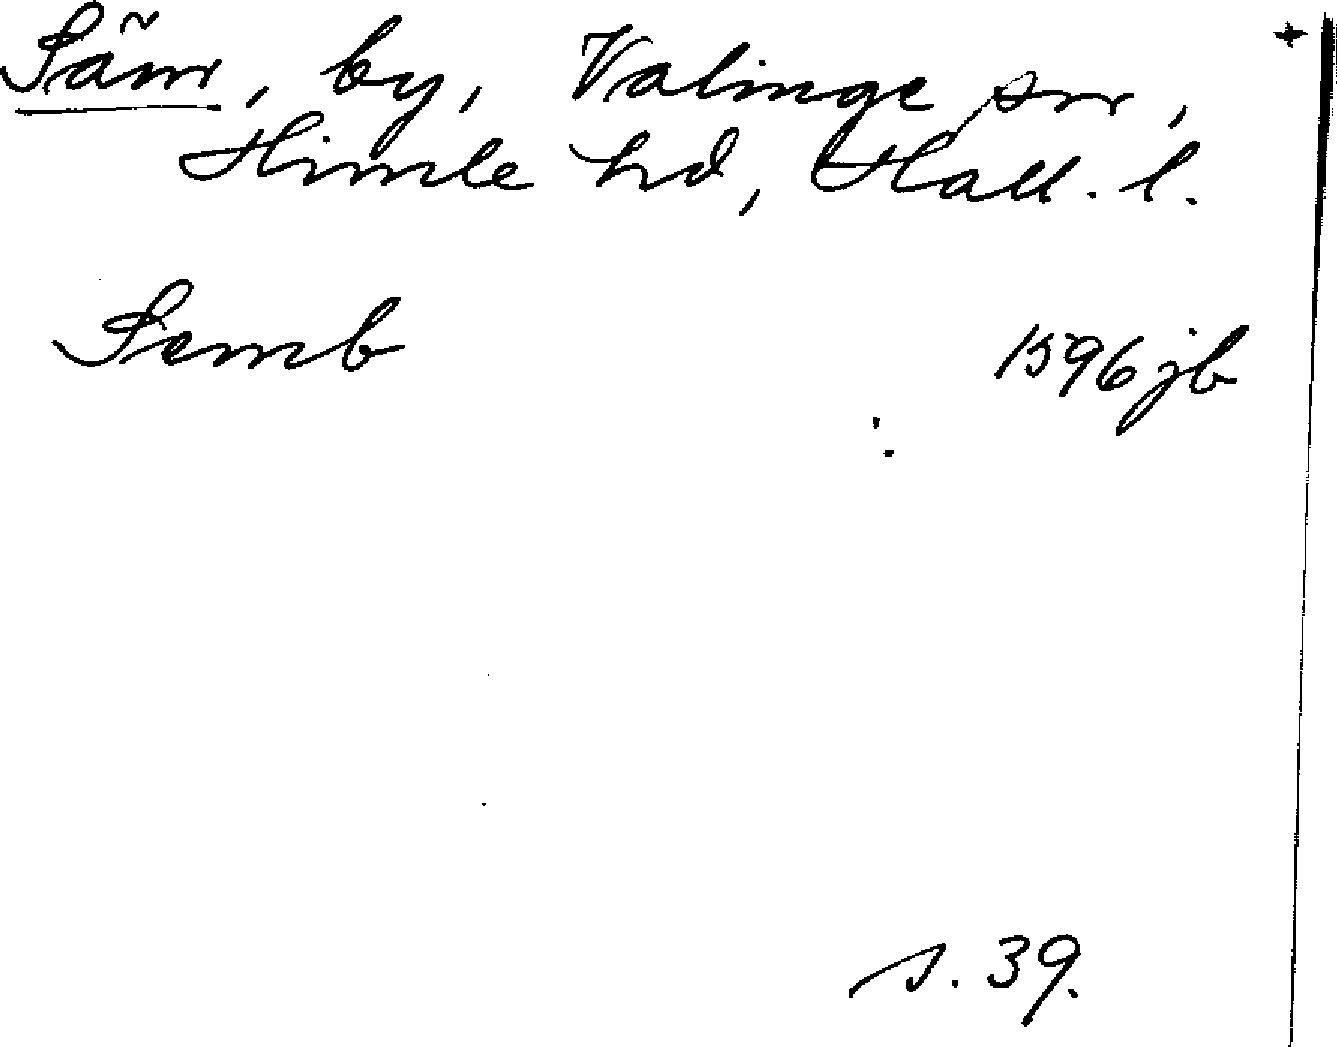 Säm, by, Valinge sn, +
Himle hd, Hall. l.
Semb 1596 jb
s. 39.